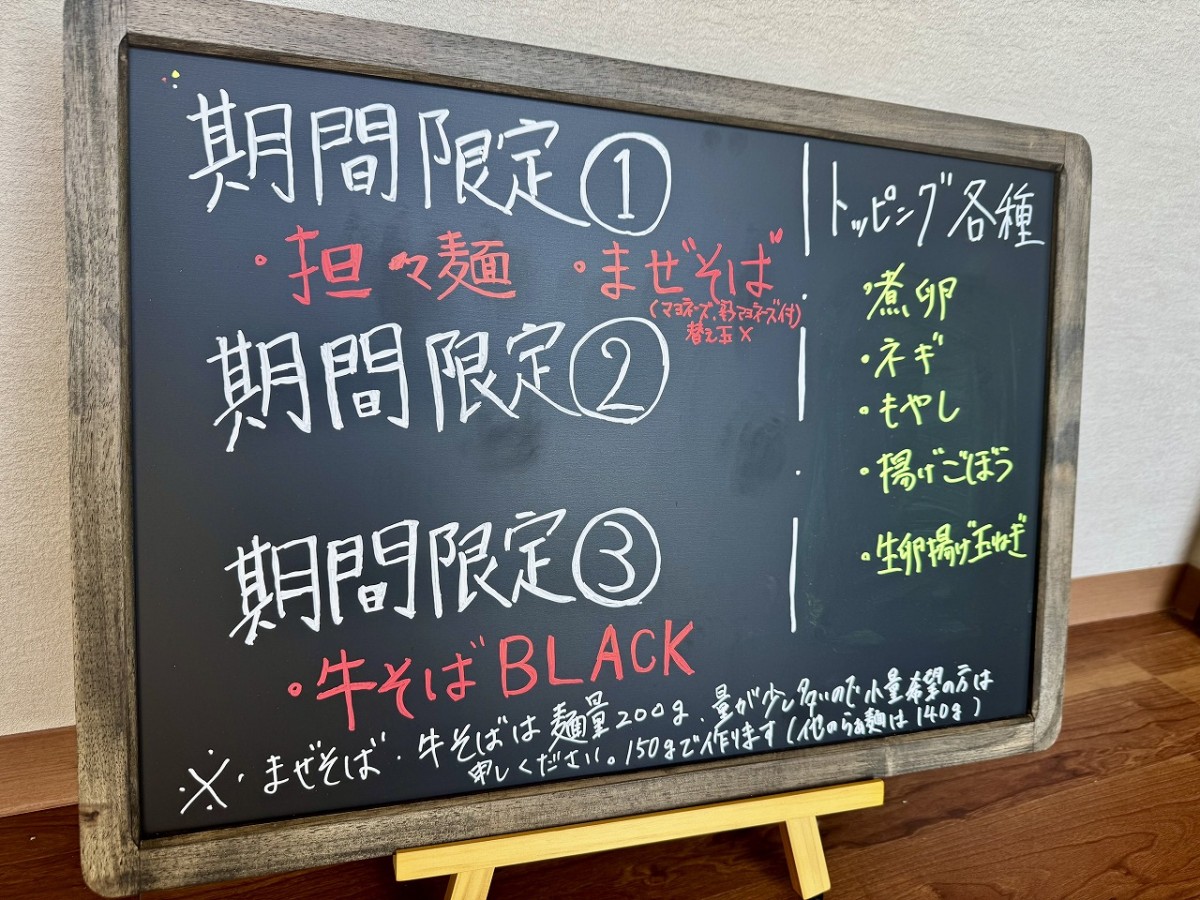 期間限定①
・担々麺 ・まぜそば
(マヨネーズ、粉マヨネーズ付)
替え玉×
期間限定②
期間限定③
・牛そばBLACK
※・まぜそば・牛そばは麺量200g、量が少し多いので小量希望の方は
申しください。150gで作ります(他のらぁ麺は140g)
トッピング各種
・煮卵
・ネギ
・もやし
・揚げごぼう
・生卵揚げ玉ねぎ